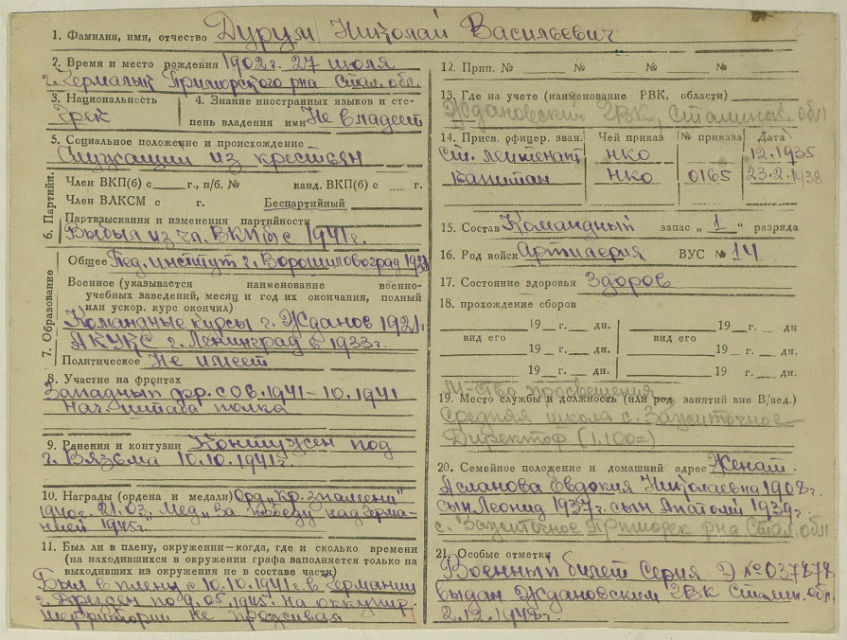 1. Фамилия, имя, отчество Дурум Николай Васильевич
2. Время и место рождения 1902 г. 27 июля
Приморского р-на Стал. обл.
3. Национальность Грек
4. Знание иностранных языков и сте-
пень владения ими Не владеет
5. Социальное положение и происхождение
Служащий из крестьян
6. Партийн.
Член ВКП(б) с г., п/б. № канд. ВКП(б) с г.
Член ВЛКСМ с г. Беспартийный
Партвзыскания и изменения партийности
Выбыл из чл. ВКПб с 1941 г.
7. Образование
Общее Пед. институт г. Ворошиловоград
Военное (указывается наименование военно-
учебных заведений, месяц и год их окончания, полный
или ускор. курс окончил)
Командные курсы г. Жданов 1921 г.
АКУКС г. Ленинград в 1933 г.
Политическое Не имеет
8. Участие на фронтах
Западный фр. с 08.1941 - 10.1941
Нач. штаба полка
9. Ранения и контузии Контужен под
г. Вязьма 10.10.1941 г.
10. Награды (ордена и медали) Орд. „Кр. знамени"
1940 г. 21.03. Мед „За победу над Герма-
нией 1945 г.
11. Был ли в плену, окружении—когда, где и сколько времени
(на находившихся в окружении графа заполняется только на
выходивших из окружения не в составе части)
Был в плену с 10.10.1941 г. в Германии
г. Дрезден по 9.05.1945. На оккупир.
территории не проживал
12. Прип. № № № №
13. Где на учете (наименование РВК, области)
Ждановский ГВК, Сталинск. обл
14. Присв. офицер. зван. Чей приказ № приказа Дата
Ст. лейтенант НКО 12.1935
Капитан НКО 0165 23.2.1938
15. Состав Командный запас „ 1 " разряда
16. Род войск Артилерия ВУС № 14
17. Состояние здоровья Здоров
18. прохождение сборов
19 г. дн. 19 г. дн
вид его вид его
19 г. дн. 19 г. дн.
19 г. дн. 19 г. дн.
М-ство просвещения
19. Место службы и должность (или род занятий вне В/вед.)
Средняя школа с. Зажиточное
Директор (1.100=)
20. Семейное положение и домашний адрес Женат.
Асланова Евдокия Николаевна 1908 г.
сын Леонид 1937 г. сын Анатолий 1939 г.
с. Зажиточное р-на Стал. обл
21. Особые отметки
Военный билет Серия Э № 037878
выдан Ждановским ГВК Сталин. обл.
2.12.1948 г.